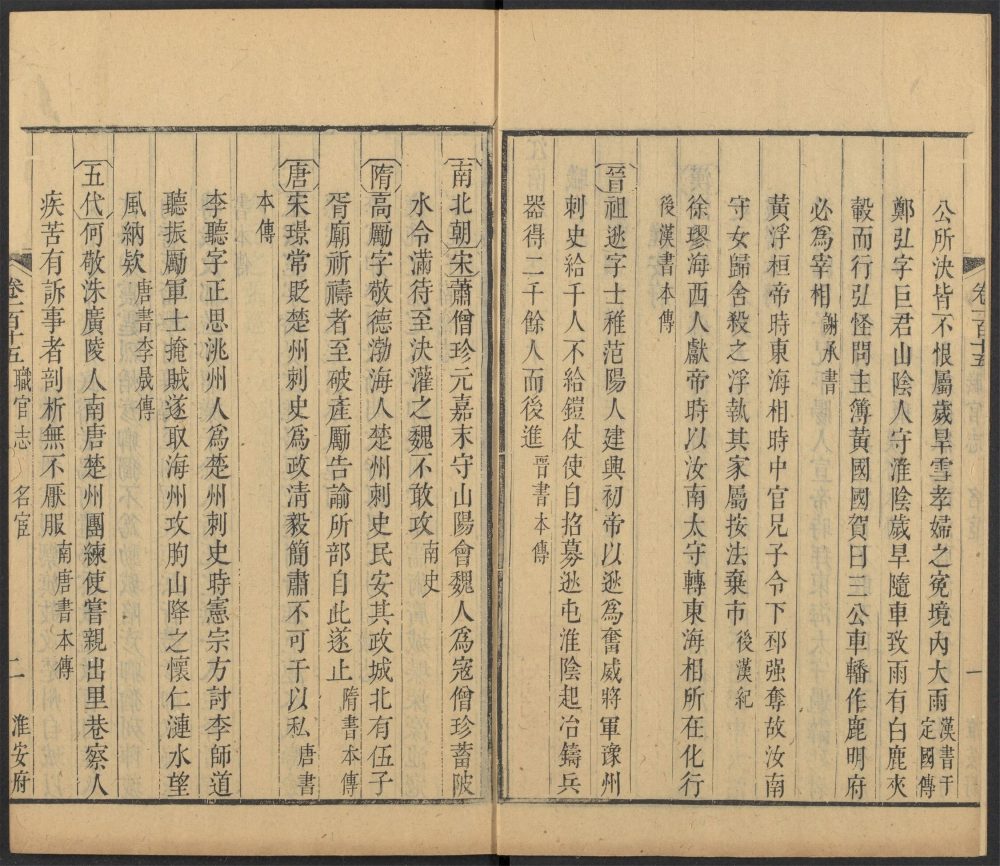 公所決皆不恨屬歲旱雪孝婦之寃境內大雨漢書于定國傳
鄭弘字巨君山陰人守淮陰歲旱隨車致雨有白鹿夾
轂而行弘怪問主簿黃國國賀曰三公車轓作鹿明府
必爲宰相謝承書
黃浮桓帝時東海相時中官兄子令下邳强奪故汝南
守女歸舍殺之浮執其家屬按法棄市後漢紀
徐璆海西人獻帝時以汝南太守轉東海相所在化行
後漢書本傳
晉祖逖字士稚范陽人建興初帝以逖爲奮威將軍豫州
刺史給千人不給鎧仗使自招募逖屯淮陰起冶鑄兵
器得二千餘人而後進晉書本傳
卷一百十五
一
南北朝宋蕭僧珍元嘉末守山陽會魏人爲寇僧珍蓄陂
水令滿待至決灌之魏不敢攻南史
隋高勵字敬德渤海人楚州刺史民安其政城北有伍子
胥廟祈禱者至破產勵告諭所部自此遂止隋書本傳
唐宋璟常貶楚州刺史爲政清毅簡肅不可干以私唐書
本傳
李聽字正思洮州人爲楚州刺史時憲宗方討李師道
聽振勵軍士掩賊遂取海州攻朐山降之懷仁漣水望
風納欵唐書李晟傳
五代何敬洙廣陵人南唐楚州團練使嘗親出里巷察人
疾苦有訴事者剖析無不厭服南唐書本傳
卷一百十五 職官志 名宦 二 淮安府